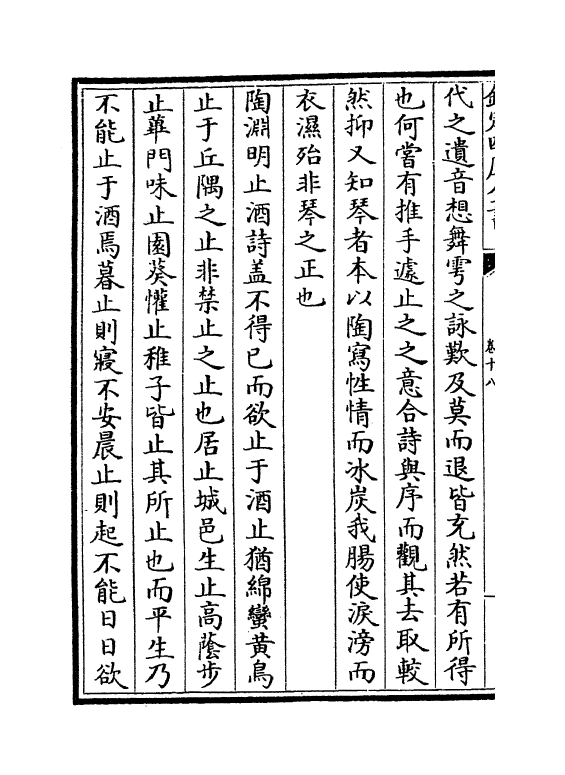 卷十八
代之遺音想舞雩之詠歎及莫而退皆充然若有所得
也何嘗有推手遽止之之意合詩與序而觀其去取較
然抑又知琴者本以陶寫性情而冰炭我腸使淚滂而
衣濕殆非琴之正也
陶淵明止酒詩盖不得已而欲止于酒止猶綿蠻黃鳥
止于丘隅之止非禁止之止也居止城邑生止高蔭步
止蓽門味止園葵懽止稚子皆止其所止也而平生乃
不能止于酒焉暮止則寢不安晨止則起不能日日欲